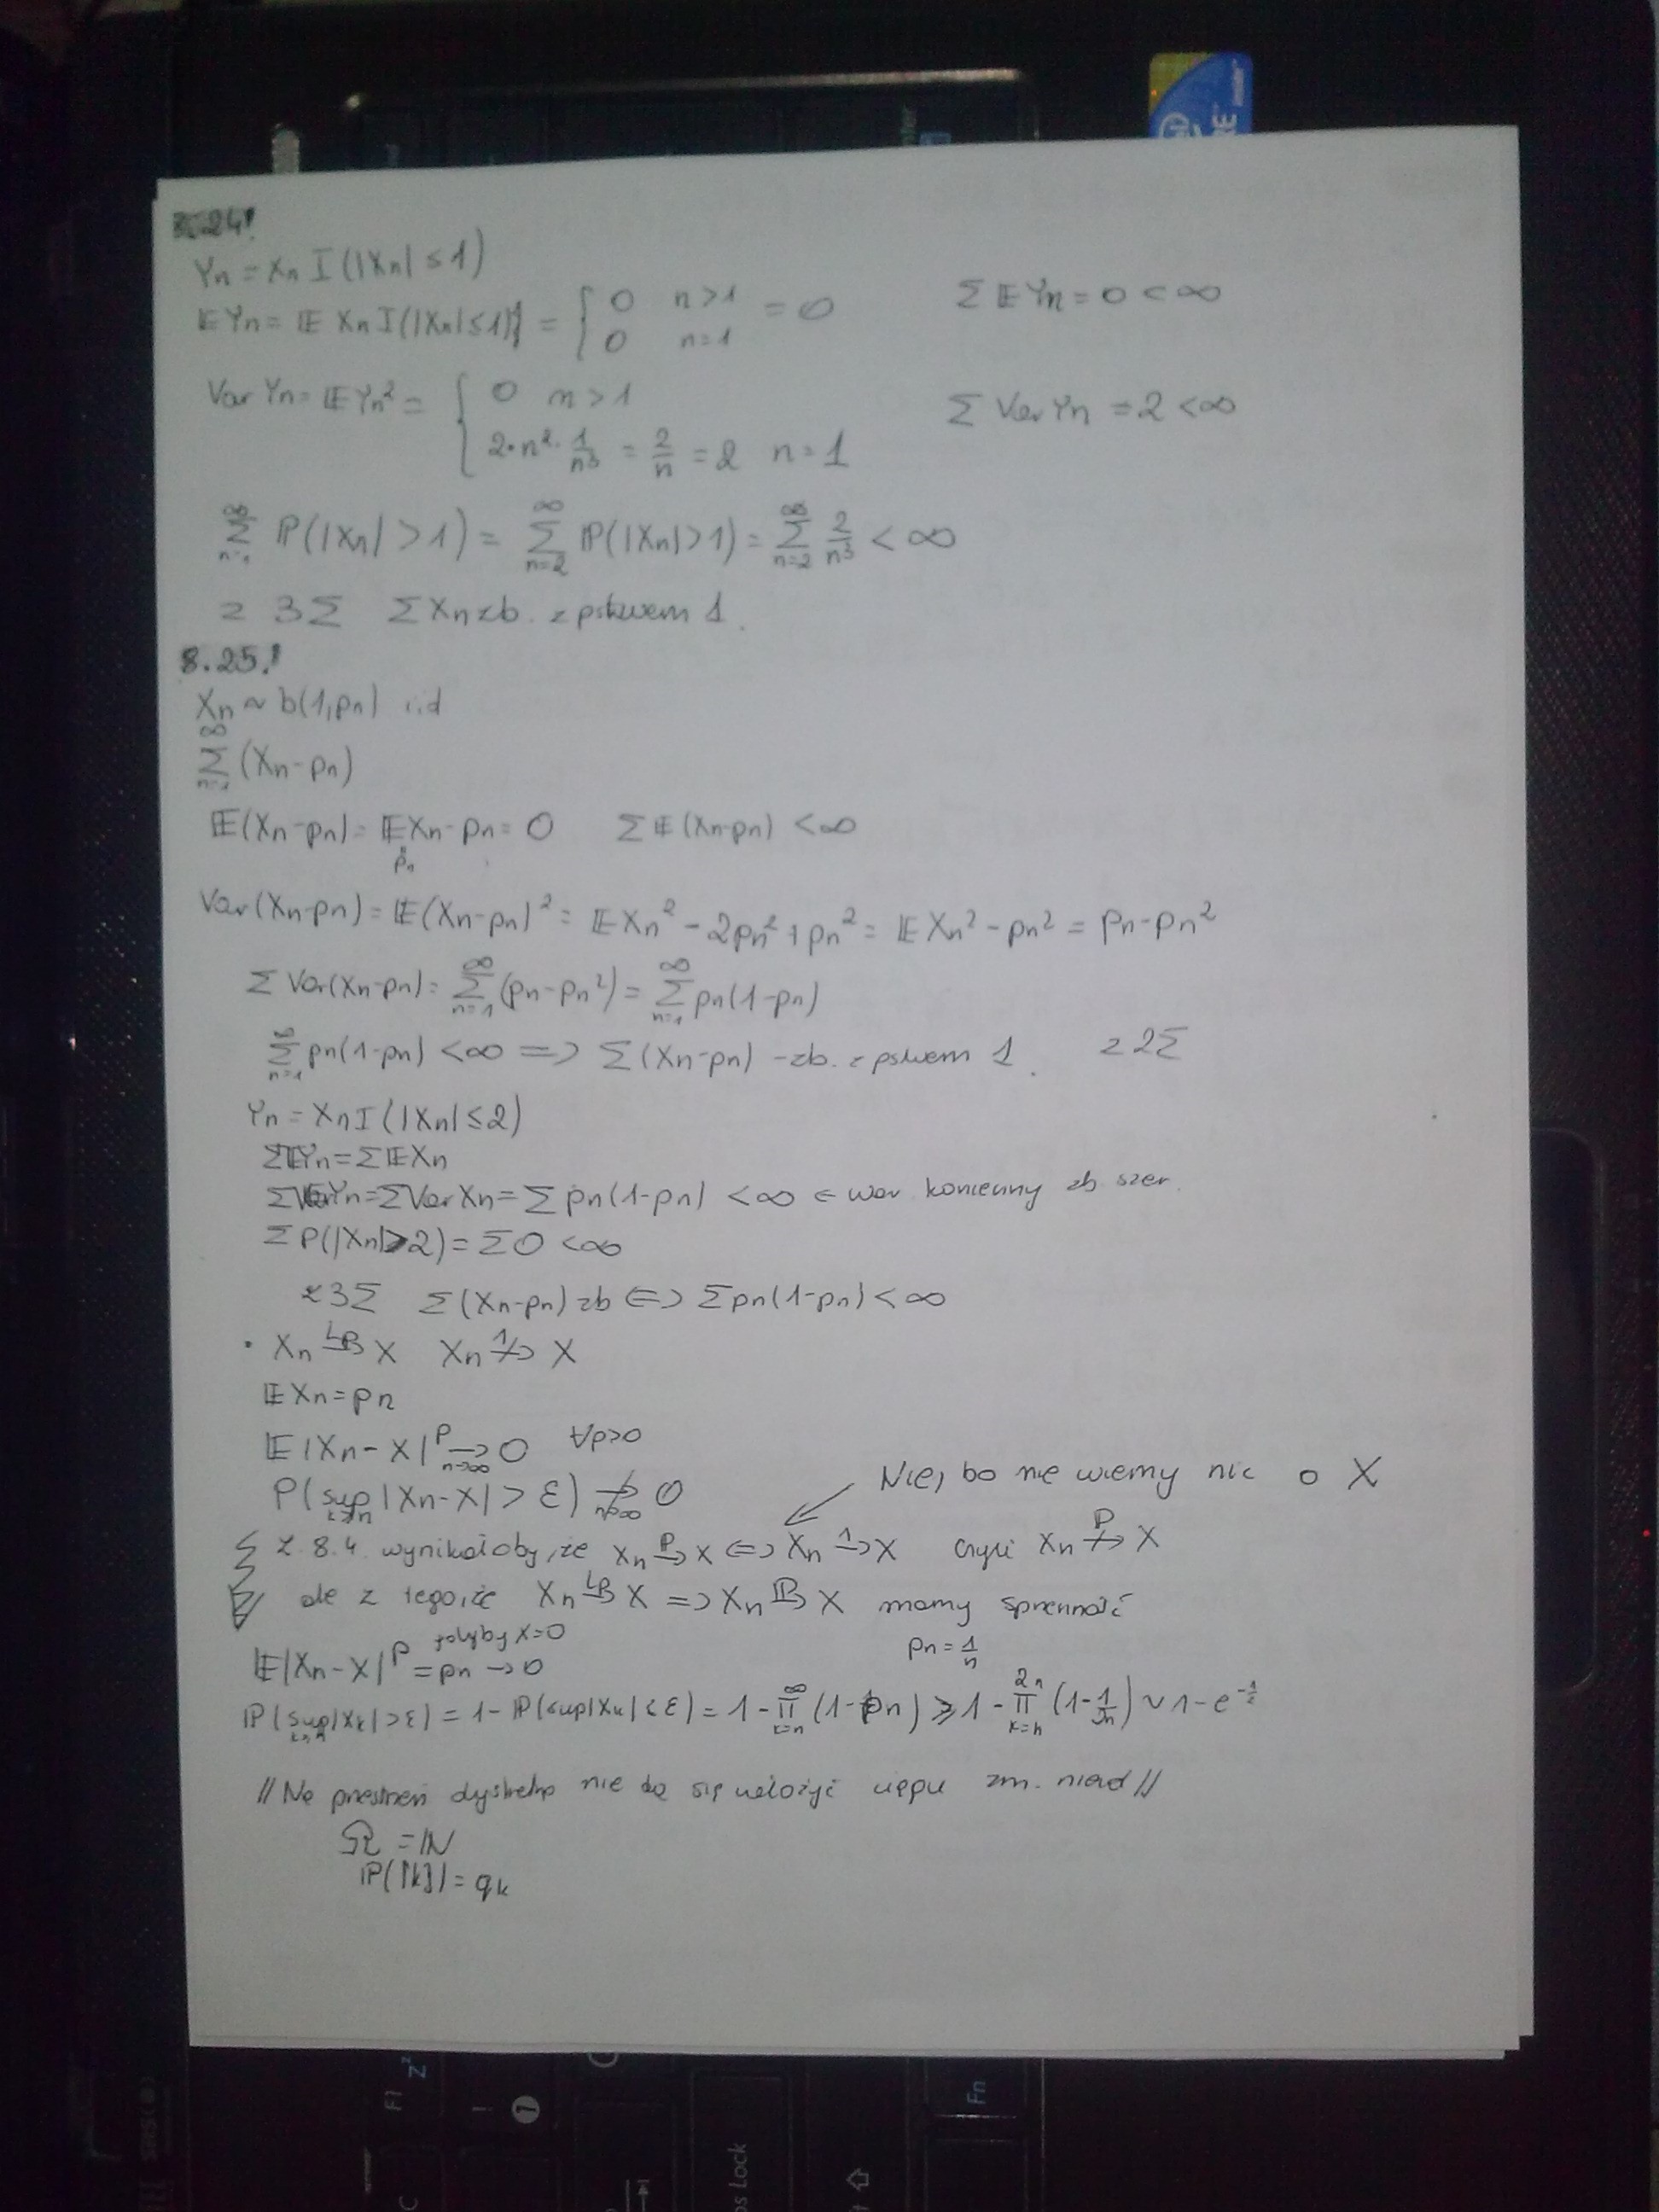 8.24!
Yn = Xn I(|Xn| ≤ 1)
EYn = E Xn I(|Xn| ≤ 1)} = { 0 n>1 0 n=1 = 0 Σ E Yn = 0 < ∞
Var Yn = E Yn² = { 0 n>1 2·n²·1/n³ = 2/n = 2 n=1 Σ Var Yn = 2 < ∞
∞Σn=1 P(|Xn| > 1) = ∞Σn=2 P(|Xn| > 1) = ∞Σn=2 2/n³ < ∞
z 3Σ ΣXn zb. z pstwem 1.
8.25!
Xn ~ b(1,pn) i.d
∞Σn=1 (Xn - pn)
E(Xn - pn) = EXn - pn = 0 Σ E(Xn-pn) < ∞
pn
Var(Xn-pn) = E(Xn-pn)² = EXn² - 2pn² + pn² = EXn² - pn² = pn - pn²
Σ Var(Xn-pn) = ∞Σn=1 (pn - pn²) = ∞Σn=1 pn(1-pn)
∞Σn=1 pn(1-pn) < ∞ => Σ(Xn-pn) - zb. z pstwem 1. z 2Σ
Yn = Xn I(|Xn| ≤ 2)
ΣEYn = ΣEXn
ΣVarYn = ΣVarXn = Σ pn(1-pn) < ∞ ← war. konieczny zb. szer.
Σ P(|Xn| > 2) = Σ0 < ∞
z 3Σ Σ(Xn-pn) zb <=> Σpn(1-pn) < ∞
• Xn Lp→ X Xn 1↛ X
E Xn = pn
E|Xn - X|^p →n→∞ 0 ∀p>0
P(sup k≥n |Xn - X| > ε) ↛n→∞ 0 Nie, bo nie wiemy nic o X
Z 8.4 wynikałoby, że Xn P→ X <=> Xn 1→ X czyli Xn P↛ X
ale z tego, że Xn Lp→ X => Xn P→ X mamy sprzeczność
gdyby X=0 pn = 1/n
E|Xn - X|^p = pn → 0
P(sup k≥n |Xk| > ε) = 1 - P(sup |Xk| < ε) = 1 - ∞Πk=n (1 - pn) ≥ 1 - 2nΠk=n (1 - 1/2n) ~ 1 - e^-1/2
// Na dyskretną nie da się włożyć ciągu zm. niezal //
Ω = N
P({k}) = qk
Fn
F1